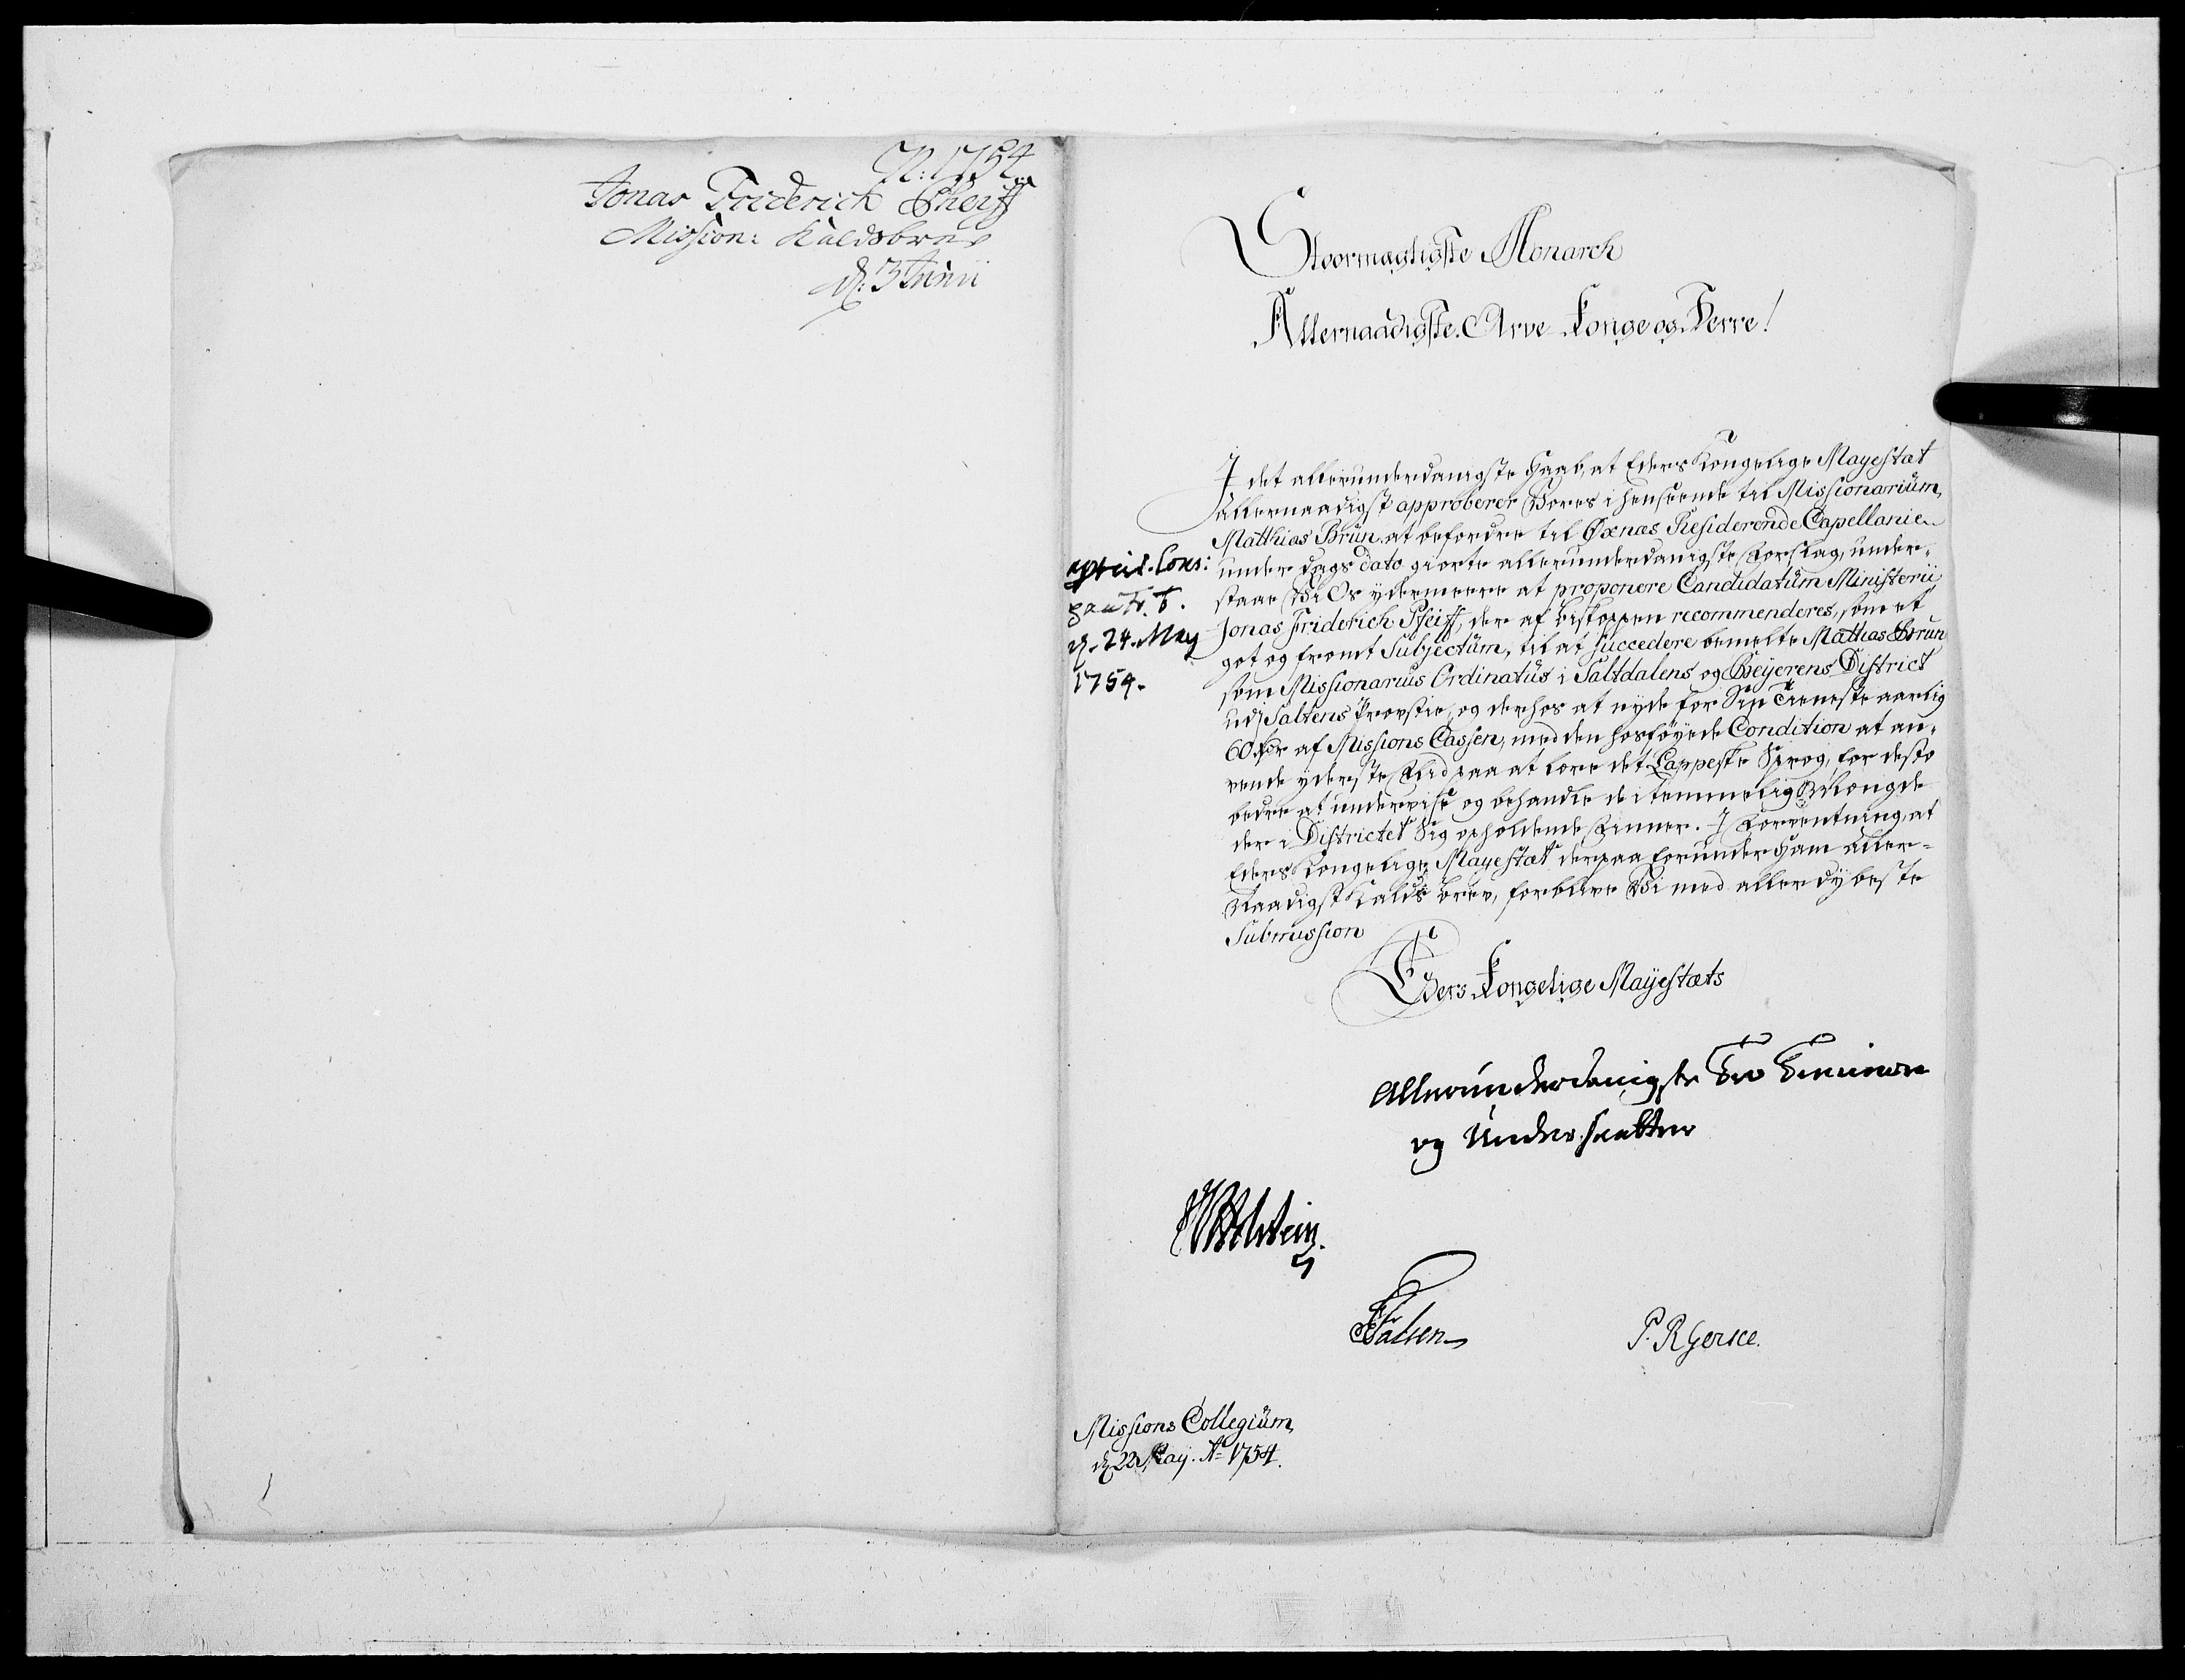 N: 1754
Jonas Friderich Pheiff
Mission: Kaldsbrev
d. 3 Junii
Stoormægtigste Monarch
Allernaadigste Arve Konge og Herre!
I det allerunderdanigste Haab, at Eders Kongelige Mayestæt
allernaadigst approberer Vores i henseende til Missionarium
Matthias Brun at befordre til Øxnæs Residerende Capellanie
under dags dato giorte allerunderdanigste Forslag, under-
staae Vi Os ydermeere at proponere Candidatum Ministerii
Jonas Friderich Pfeiff, der af Biskoppen recommenderes, som et
got og fromt Subjectum, til at succedere bemelte Mathias Brun
som Missionarius Ordinatus i Saltdalens og Beyerens District
udj Saltens Provstie, og derhos at nyde for Sin Tieneste aarlig
60 Rdr af Missions Cassen, med den hosføyede Condition at an-
vende yderste Flid paa at lære det Lappeske Sprog, for desto
bedre at underviise og behandle de i temmelig Mængde
der i Districtet Sig opholdende Finner. I Forventning, at
Eders Kongelige Mayestæt derpaa forunder Ham Aller-
Naadigst Kalds Brev, forblive Vi med allerdybeste
Submission
Cons:
d. 24. May
1754.
Eders Kongelige Mayestæts
Allerunderdanigste Troe Tienere
og Undersaatter
JLHolstein.
Falsen
P. R Gerice.
Missions Collegium,
d. 22 May. Ao 1754.